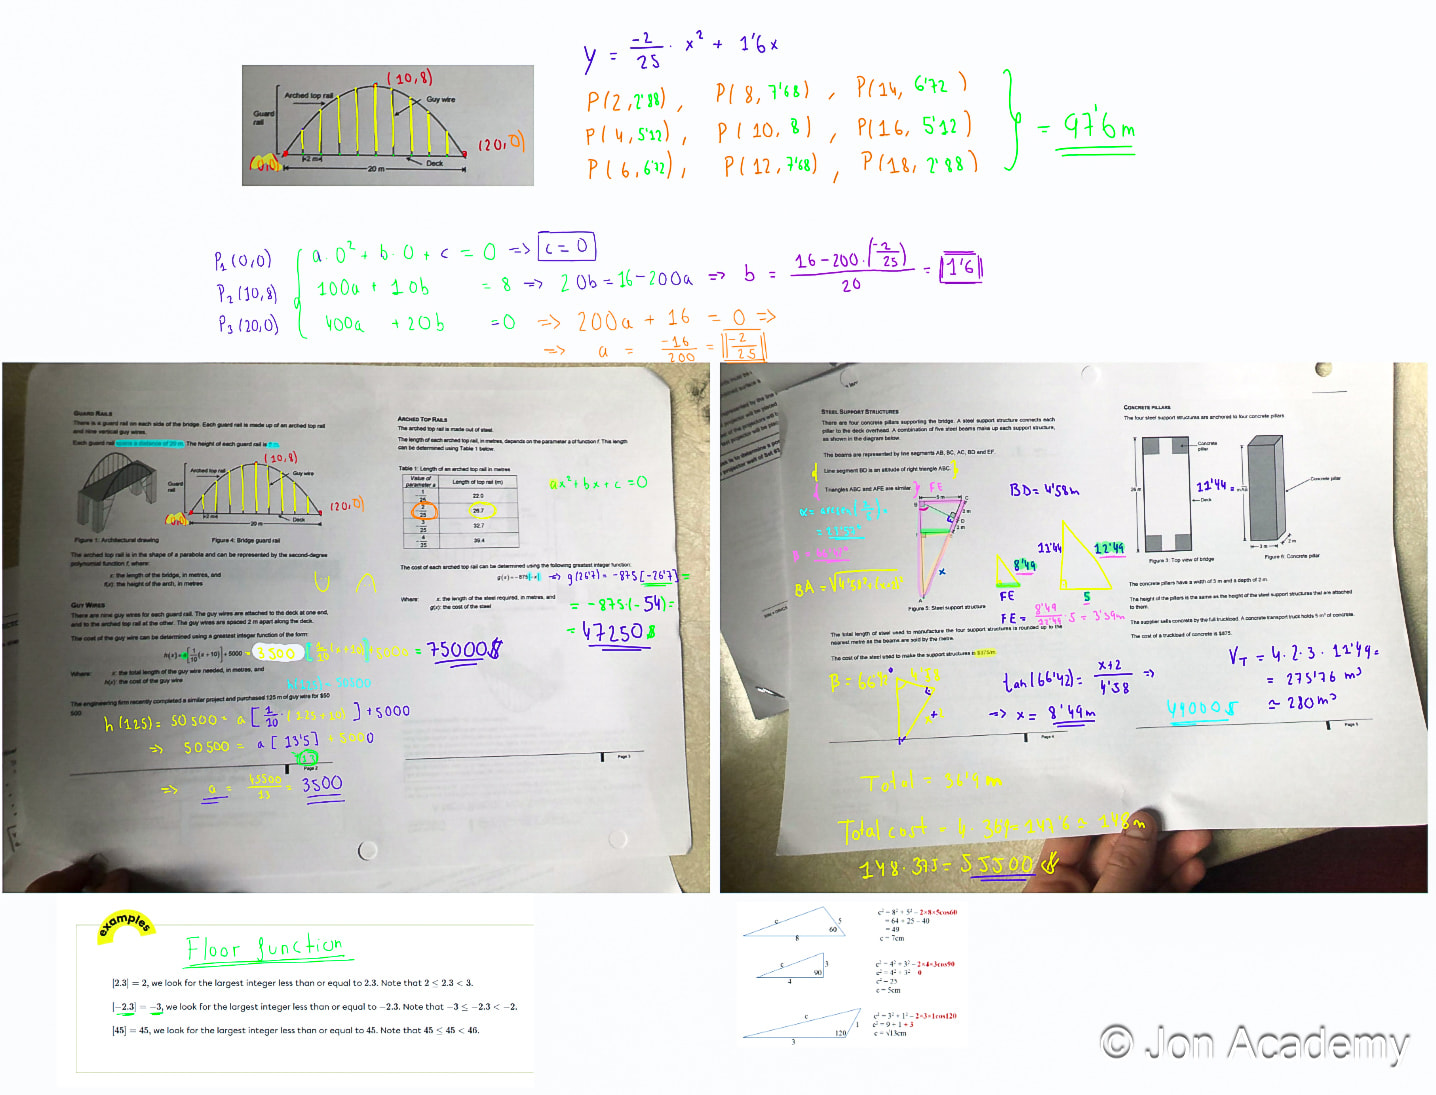 y = -2/25 · x² + 1'6x
P(2, 2'88), P(8, 7'68), P(14, 6'72)
P(4, 5'12), P(10, 8), P(16, 5'12)
P(6, 6'72), P(12, 7'68), P(18, 2'88)
= 97'6 m
(10,8)
Arched top rail
Guy wire
Guard rail
(0,0)
(20,0)
2 m
Deck
20 m
P₁(0,0) a·0² + b·0 + c = 0 => c = 0
P₂(10,8) 100a + 10b = 8 => 20b = 16-200a => b = 16-200·(-2/25) / 20 = 1'6
P₃(20,0) 400a + 20b = 0 => 200a + 16 = 0 =>
=> a = -16/200 = -2/25
GUARD RAILS
There is a guard rail on each side of the bridge. Each guard rail is made up of an arched top rail
and nine vertical guy wires.
Each guard rail spans a distance of 20 m. The height of each guard rail is
(10,8)
Arched top rail
Guy wire
Guard rail
(0,0)
(20,0)
2 m
Deck
20 m
Figure 1: Architectural drawing
Figure 4: Bridge guard rail
The arched top rail is in the shape of a parabola and can be represented by the second-degree
polynomial function f, where:
x: the length of the bridge, in metres, and
f(x): the height of the arch, in metres
GUY WIRES
There are nine guy wires for each guard rail. The guy wires are attached to the deck at one end,
and to the arched top rail at the other. The guy wires are spaced 2 m apart along the deck.
The cost of the guy wire can be determined using a greatest integer function of the form:
h(x) = a[1/10 (x + 10)] + 5000 = 3500 = 75000$
Where:
x: the total length of the guy wire needed, in metres, and
h(x): the cost of the guy wire
The engineering firm recently completed a similar project and purchased 125 m of guy wire for $50
500.
h(125) = 50500 = a[1/10 · (125+10)] + 5000
=> 50500 = a[13'5] + 5000
13
Page 2
=> a = 45500/13 = 3500
ARCHED TOP RAILS
The arched top rail is made out of steel.
The length of each arched top rail, in metres, depends on the parameter a of function f. The length
can be determined using Table 1 below.
Table 1: Length of an arched top rail in metres
Value of parameter a Length of top rail (m)
-1/25 22.0
-2/25 26.7
-3/25 32.7
-4/25 39.4
ax² + bx + c = 0
The cost of each arched top rail can be determined using the following greatest integer function:
g(x) = -875[-x] => g(26'7) = -875[-26'7] =
Where:
x: the length of the steel required, in metres, and
g(x): the cost of the steel
= -875·(-54) =
= 47250$
Page 3
STEEL SUPPORT STRUCTURES
There are four concrete pillars supporting the bridge. A steel support structure connects each
pillar to the deck overhead. A combination of five steel beams make up each support structure,
as shown in the diagram below.
The beams are represented by line segments AB, BC, AC, BD and EF.
Line segment BD is an altitude of right triangle ABC.
Triangles ABC and AFE are similar.
FE
BD = 4'58m
5 m
BA =
x
Figure 5: Steel support structure
8'49
FE
11'44
12'49
5
FE = 8'49/12'49 · 5 = 3'39m
The total length of steel used to manufacture the four support structures is rounded up to the
nearest metre as the beams are sold by the metre.
The cost of the steel used to make the support structures is $375/m.
tan(66'42) = x+2 / 4'58 =>
=> x = 8'49m
Page 4
CONCRETE PILLARS
The four steel support structures are anchored to four concrete pillars.
Concrete pillar
Deck
11'44 =
Concrete pillar
3 m
2 m
Figure 7: Top view of bridge
Figure 6: Concrete pillar
The concrete pillars have a width of 3 m and a depth of 2 m.
The height of the pillars is the same as the height of the steel support structures that are attached
to them.
The supplier sells concrete by the full truckload. A concrete transport truck holds 5 m³ of concrete.
The cost of a truckload of concrete is $875.
V_T = 4·2·3·11'49 =
= 275'76 m³
≈ 280m³
49000$
Page 5
Total = 36'9 m
Total cost = 4 · 36'9 = 147'6 ≈ 148m
148·375 = 55500$
examples
Floor function
⌊2.3⌋ = 2, we look for the largest integer less than or equal to 2.3. Note that 2 ≤ 2.3 < 3.
⌊−2.3⌋ = −3, we look for the largest integer less than or equal to −2.3. Note that −3 ≤ −2.3 < −2.
⌊45⌋ = 45, we look for the largest integer less than or equal to 45. Note that 45 ≤ 45 < 46.
c
5
60
8
c² = 8² + 5² − 2×8×5cos60
= 64 + 25 − 40
= 49
c = 7cm
c
3
90
4
c² = 4² + 3² − 2×4×3cos90
c² = 4² + 3² 0
c² = 25
c = 5cm
c
1
120
3
c² = 3² + 1² − 2×3×1cos120
c² = 9 + 1 + 3
c = √13cm
© Jon Academy